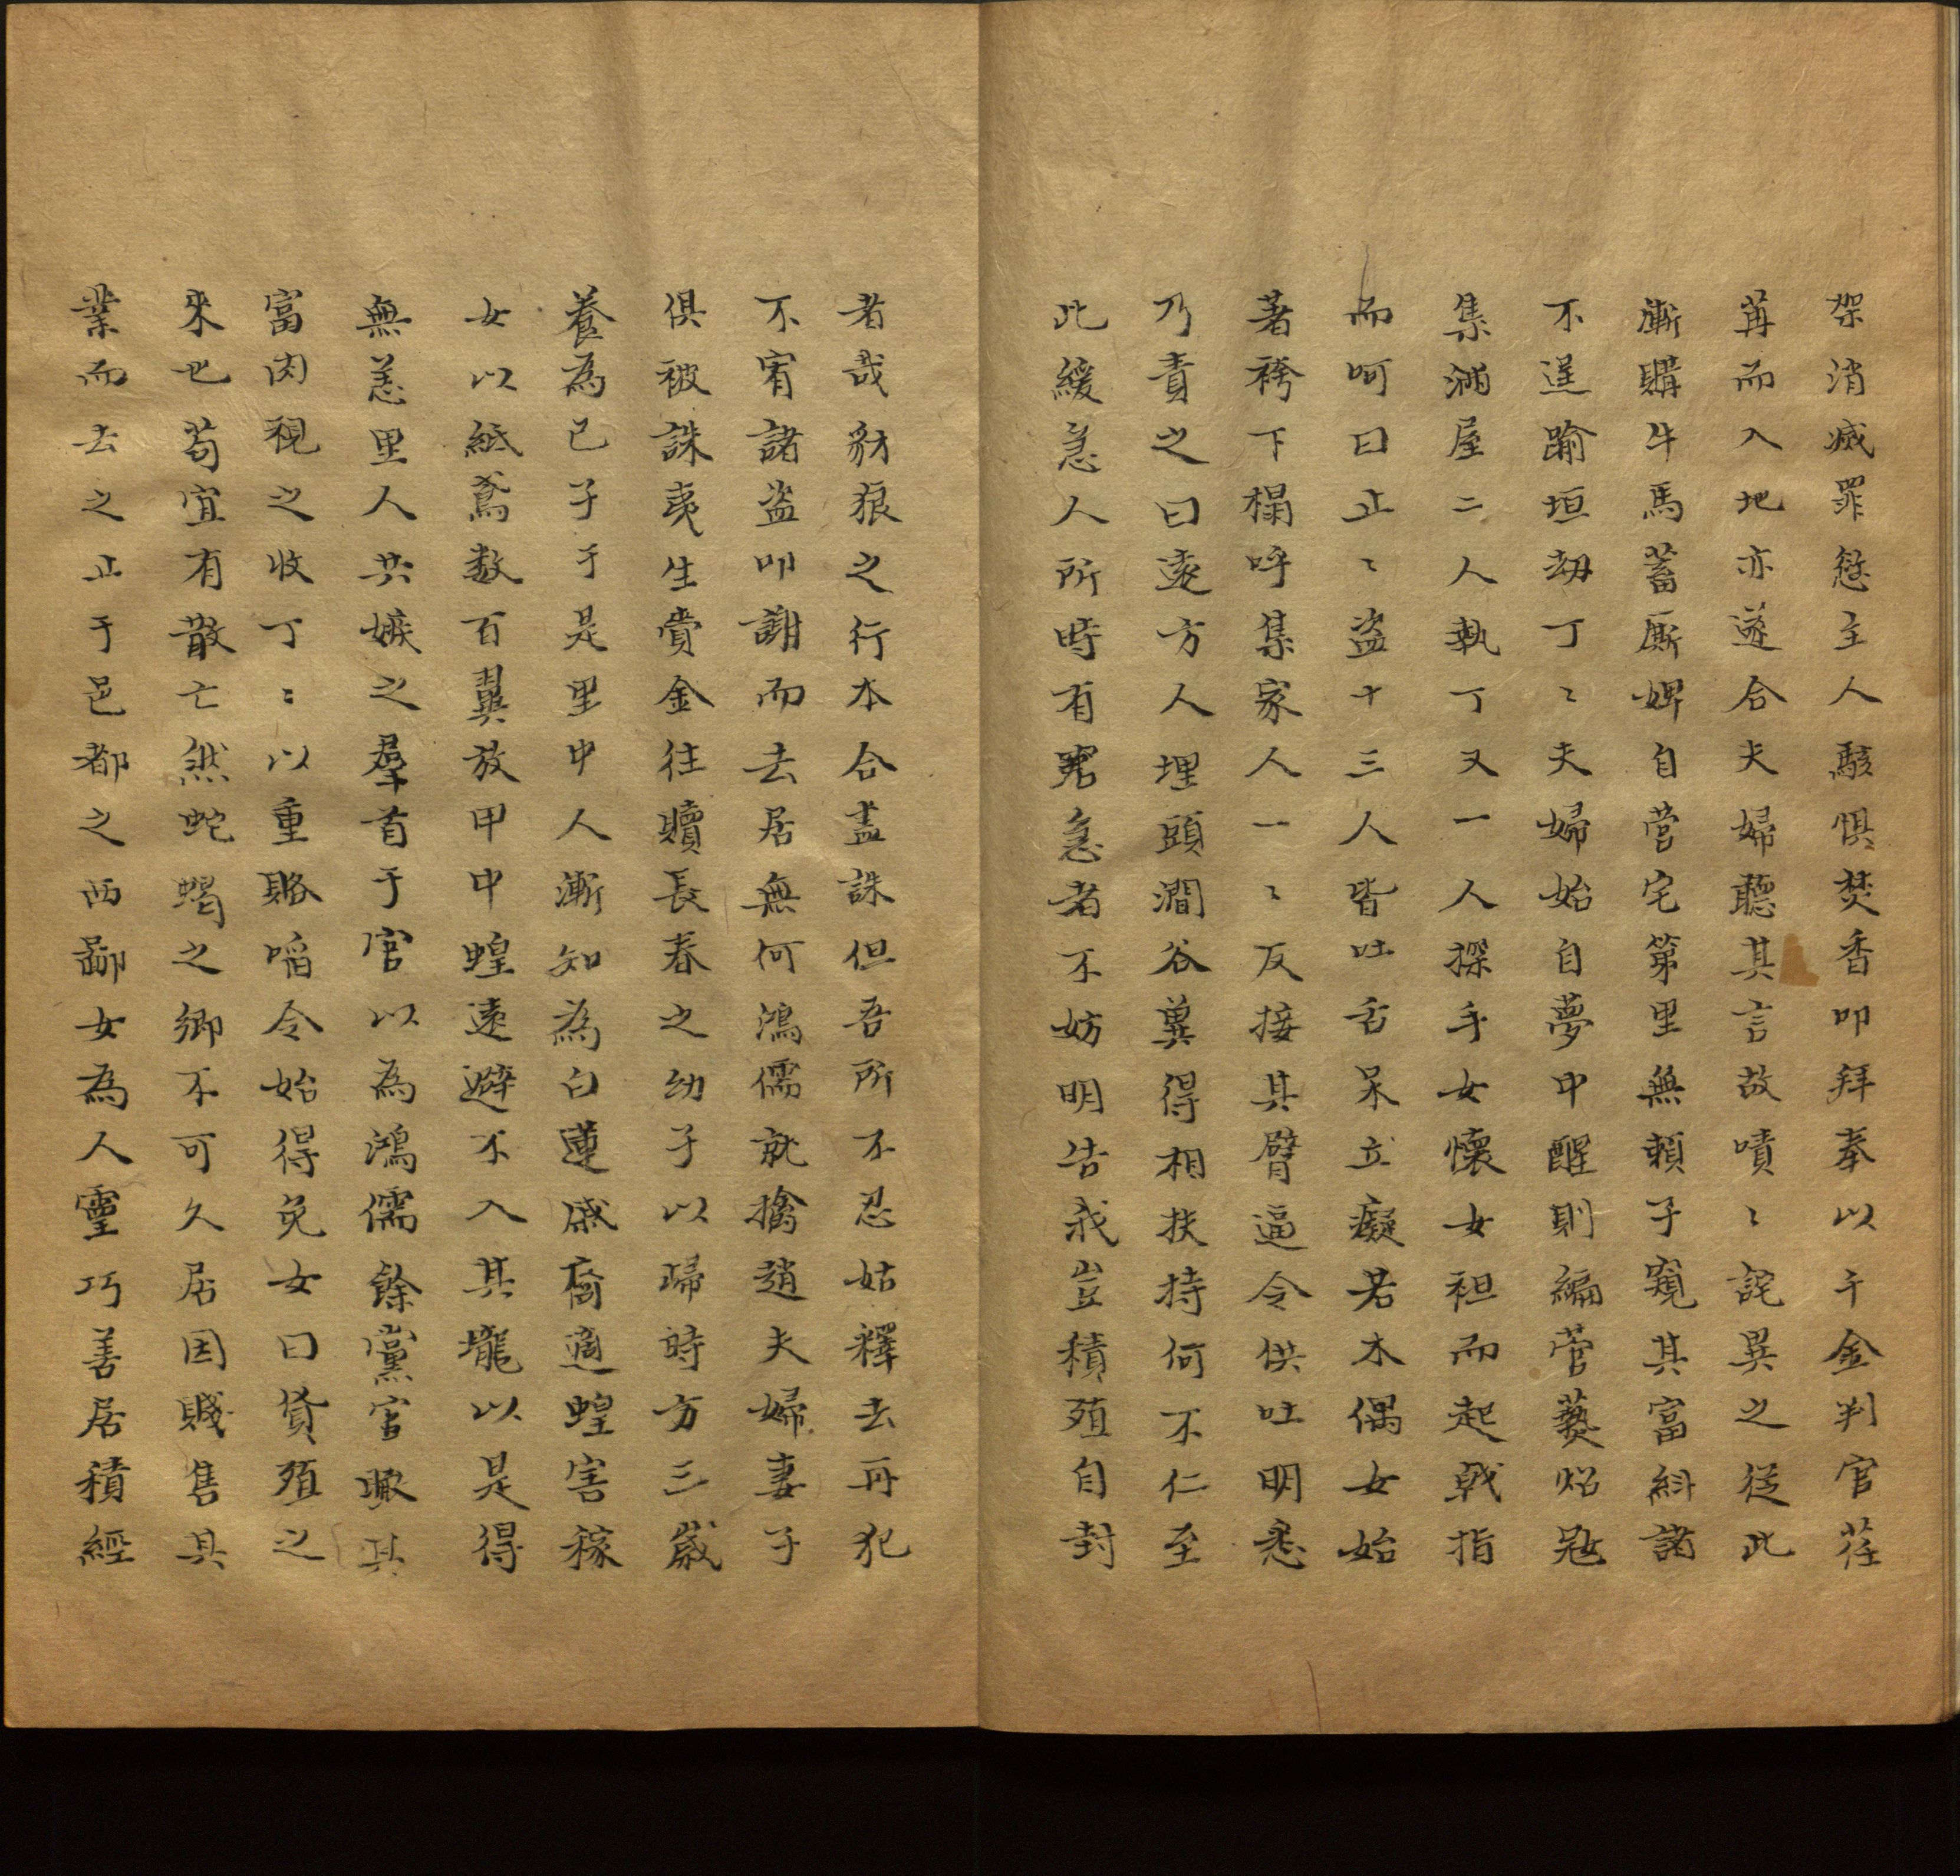 架消滅罪愆主人駭惧焚香叩拜奉以千金判官荏
苒而入地亦遂合夫婦聽其言故嘖〻詫異之從此
漸購牛馬蓄厮婢自營宅第里無賴子窺其富糾諸
不逞踰垣劫丁〻夫婦始自夢中醒則編菅爇炤冦
集滿屋二人執丁又一人探手女懷女袒而起戟指
而呵曰止〻盗十三人皆吐舌呆立癡若木偶女始
著袴下榻呼集家人一〻反接其臂逼令供吐明悉
乃責之曰遠方人埋頭澗谷冀得相扶持何不仁至
此緩急人所時有窘急者不妨明告我豈積殖自封
者哉豺狼之行本合盡誅但吾所不忍姑釋去再犯
不宥諸盗叩謝而去居無何鴻儒就擒趙夫婦妻子
俱被誅夷生賫金往贖長春之幼子以歸時方三歲
養為己子于是里中人漸知為白蓮戚裔適蝗害稼
女以紙鳶数百翼放甲中蝗遠避不入其壠以是得
無恙里人共嫉之羣首于官以為鴻儒餘黨官瞰其
富肉視之收丁〻以重賂啗令始得免女曰貨殖之
來也苟宜有散亡然蛇蝎之鄉不可久居因賤售其
業而去之止于邑都之西鄙女為人靈巧善居積經